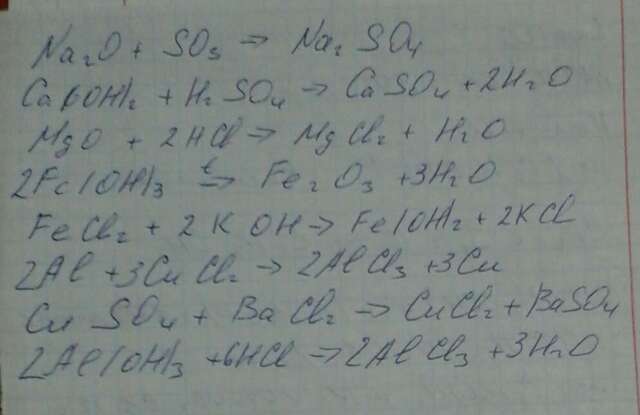 Na₂O + SO₃ → Na₂SO₄
Ca(OH)₂ + H₂SO₄ → CaSO₄ + 2H₂O
MgO + 2HCl → MgCl₂ + H₂O
2Fe(OH)₃ t→ Fe₂O₃ + 3H₂O
FeCl₂ + 2KOH → Fe(OH)₂ + 2KCl
2Al + 3CuCl₂ → 2AlCl₃ + 3Cu
CuSO₄ + BaCl₂ → CuCl₂ + BaSO₄
2Al(OH)₃ + 6HCl → 2AlCl₃ + 3H₂O